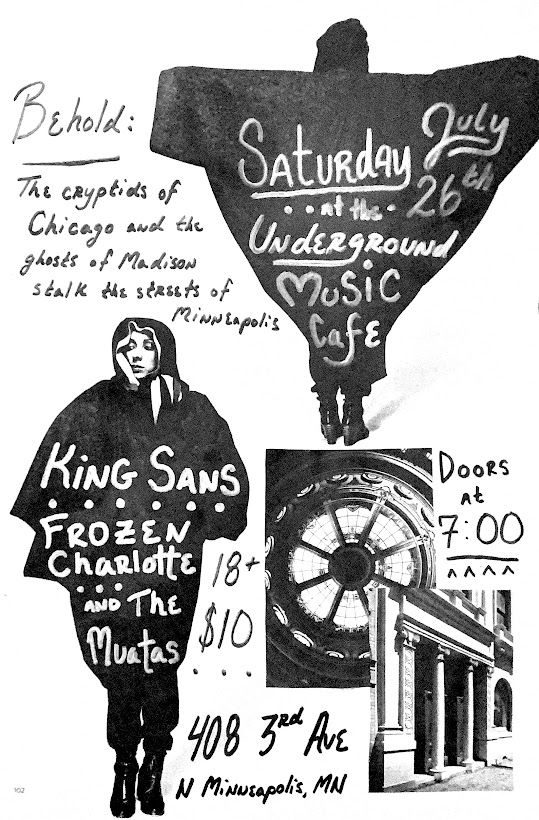 Behold:
The cryptids of
Chicago and the
ghosts of Madison
stalk the streets of
Minneapolis
Saturday July
26th
at the
Underground
Music
Cafe
King Sans
Frozen
Charlotte
and The
Muatas
18+
$10
Doors
at
7:00
408 3rd Ave
N Minneapolis, MN
102